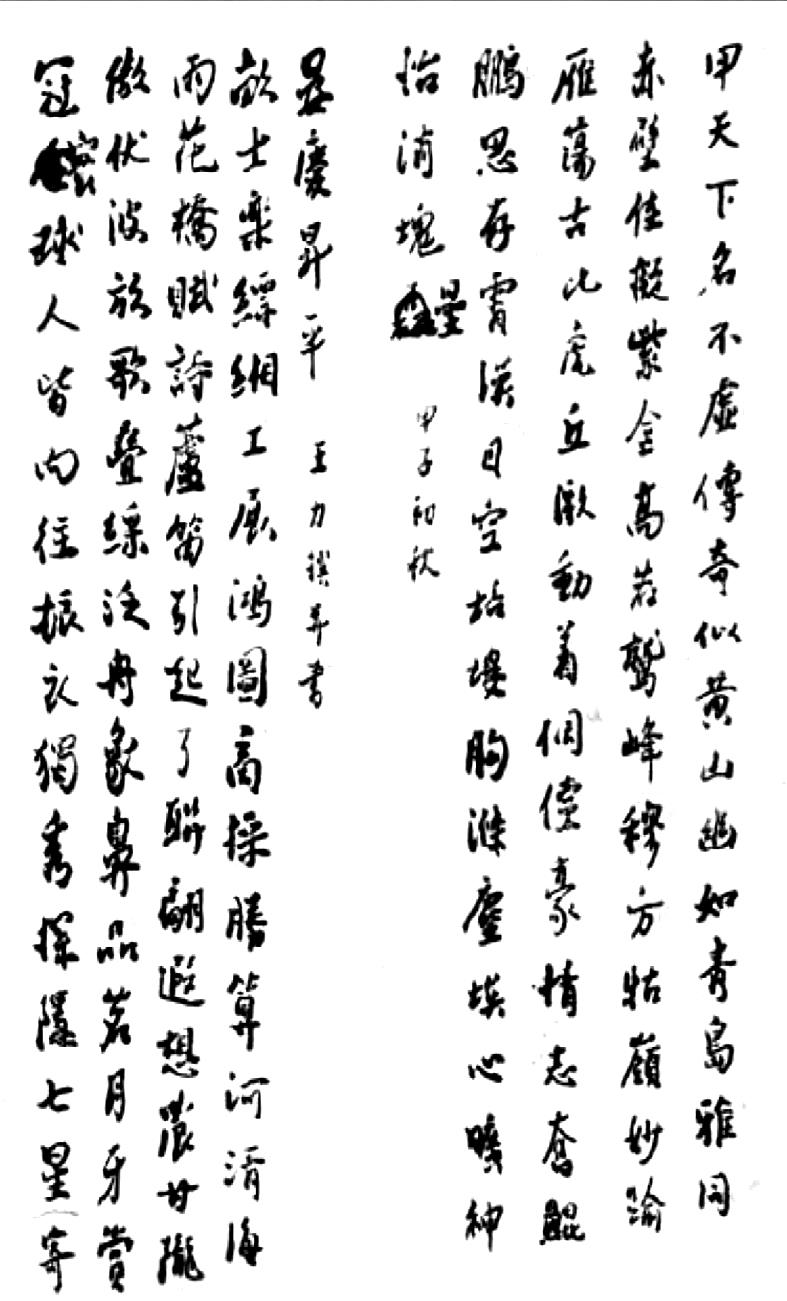 甲天下名不虛傳奇似黃山幽如青島雅同
赤壁佳擬紫金高若鷲峰穆方牯嶺妙踰
雁蕩古比虎丘激動着倜儻豪情志奮鯤
鵬思存霄漢目空培塿胸滌塵埃心曠神
怡消塊壘
甲子初秋
冠寰球人皆向往振衣獨秀探隱七星寄
傲伏波放歌疊綵泛舟象鼻品茗月牙賞
雨花橋賦詩蘆笛引起了聯翩遐想農甘隴
畝士樂縹緗工展鴻圖商操勝算河清海
晏慶昇平
王力撰并書